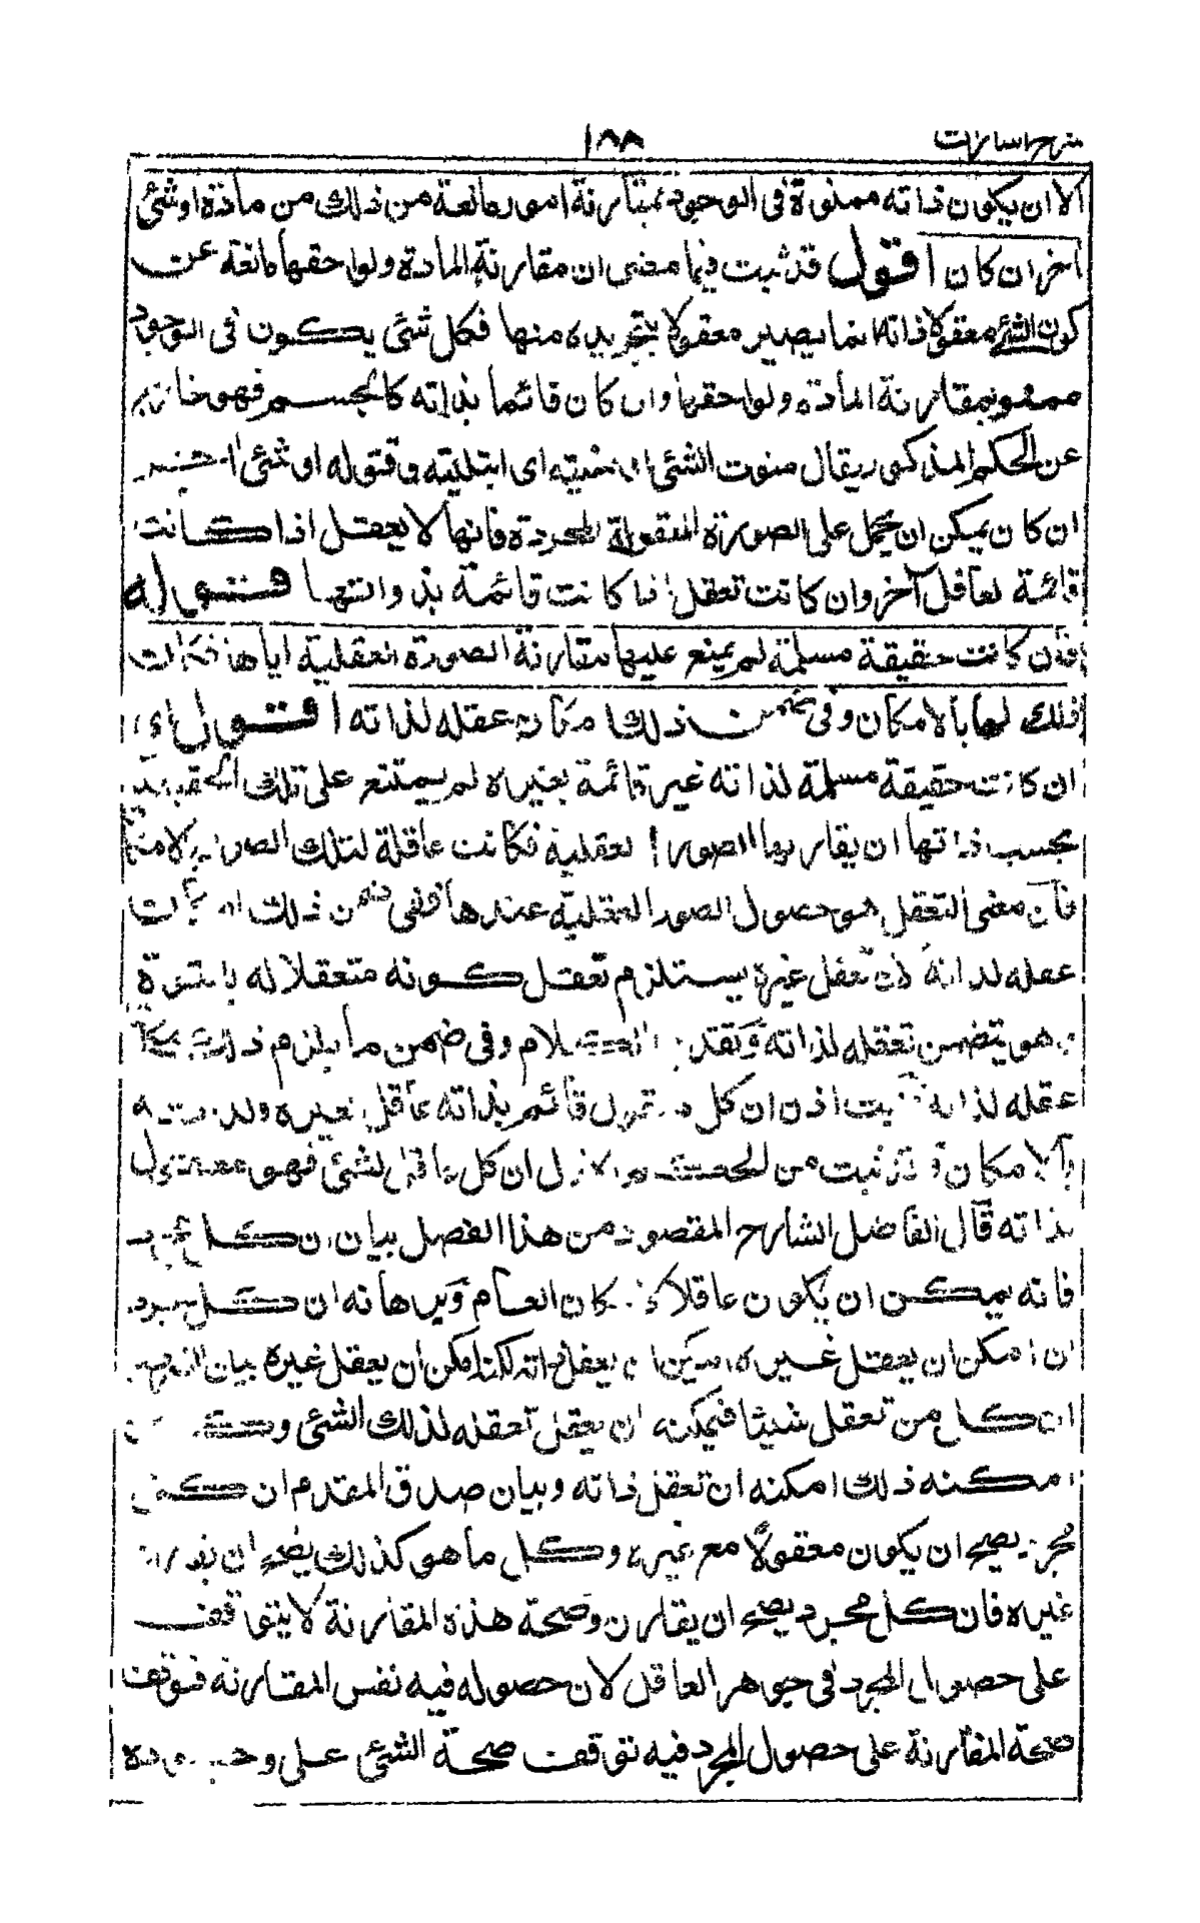 شرح اشارات ١٨٨
الا ان يكون ذاته ممنوة فى الوجود بمقارنة امور مانعة من ذلك من مادة او شئ
اخر ان كان اقول قد ثبت فيما مضى ان مقارنة المادة ولواحقها مانعة عن
كون الشئ معقولا لذاته انما يصير معقولا بتجريده منها فكل شئ يكون فى الوجود
ممنو بمقارنة المادة ولواحقها وان كان قائما بذاته كالجسم فهو خارج
عن الحكم المذكور يقال منوت الشئ اى ابتليته وقوله او شئ اخر
ان كان يمكن ان يحمل على الصورة المعقولة المجردة فانها لا يعقل اذا كانت
قائمة لعاقل آخر وان كانت تعقل اذا كانت قائمة بذواتها قوله
فان كانت حقيقة مسلمة لم يمنع عليها مقارنة الصورة العقلية اياها فكانت
ذلك لها بالامكان وفى ضمن ذلك امكان عقله لذاته اقول اى
ان كانت حقيقة مسلمة لذاته غير قائمة بغيره لم يمتنع على تلك الحقيقة
بحسب ذاتها ان يقارنها الصورة العقلية فكانت عاقلة لتلك الصورة بالامكان
فان معنى التعقل هو حصول الصور العقلية عندها وفى ضمن ذلك امكان
عقله لذاته لان تعقل غيره يستلزم تعقل كونه متعقلا له بالقوة
وهو يتضمن تعقله لذاته وتقدير الكلام وفى ضمن ما يلزم ذلك امكان
عقله لذاته ثبت اذن ان كل قائم بذاته عاقل لغيره ولذاته
بالامكان وقد ثبت من ان كل عاقل لشئ فهو معقول
بذاته قال الفاضل الشارح المقصود من هذا الفصل بيان ان كل مجرد
فانه يمكن ان يكون عاقلا كان العام وبرهانه ان كل مجرد
ان امكن ان يعقل غيره امكن ان يعقل ذاته لكن امكن ان يعقل غيره بيان
ان كل من تعقل شيئا فيمكنه ان يعقل تعقله لذلك الشئ وكل من
امكنه ذلك امكنه ان تعقل ذاته وبيان صدق المقدم ان كل
مجرد يصح ان يكون معقولا مع غيره وكل ما هو كذلك يصح ان يقارن
غيره فان كل مجرد يصح ان يقارن وصحة هذه المقارنة لا يتوقف
على حصول المجرد فى جوهر العاقل لان حصوله فيه نفس المقارنة فتوقف
صحة المقارنة على حصول المجرد فيه توقف صحة الشئ على وجوده